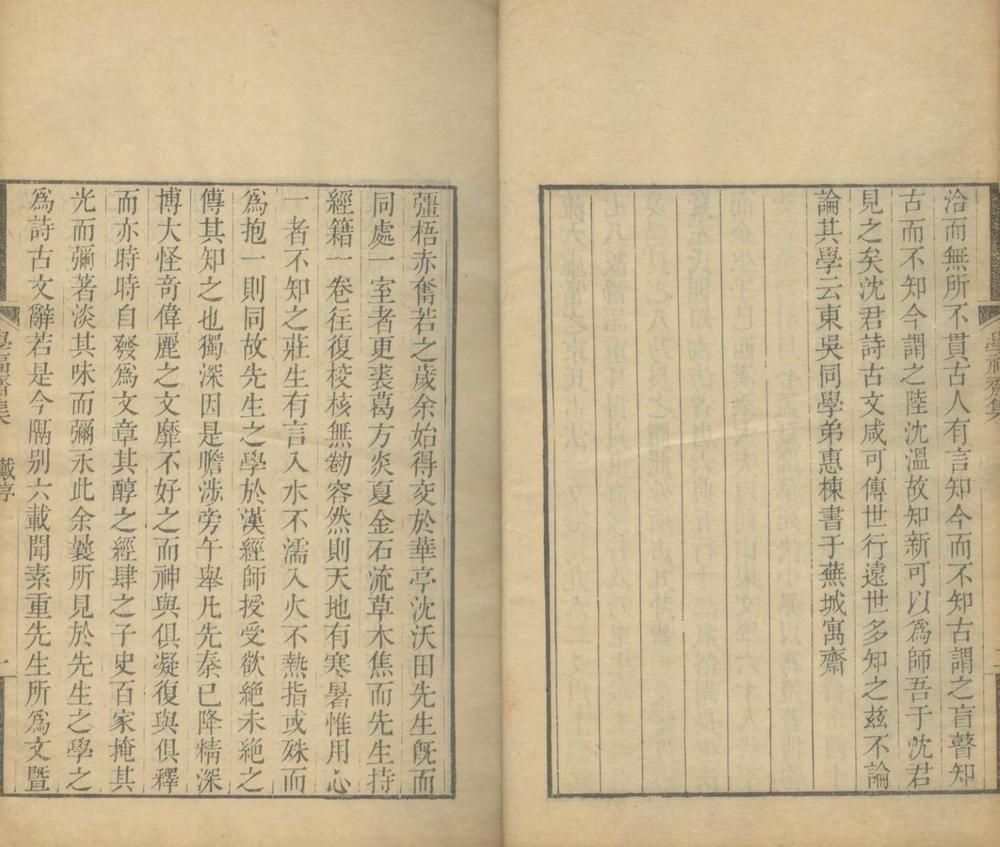 洽而無所不貫古人有言知今而不知古謂之盲瞽知
古而不知今謂之陸沈溫故知新可以爲師吾于沈君
見之矣沈君詩古文咸可傳世行遠世多知之茲不論
論其學云東吳同學弟惠棟書于蕪城寓齋
彊梧赤奮若之歲余始得交於華亭沈沃田先生旣而
同處一室者更裘葛方炎夏金石流草木焦而先生持
經籍一卷往復校核無勌容然則天地有寒暑惟用心
一者不知之莊生有言入水不濡入火不熱指或殊而
爲抱一則同故先生之學於漢經師授受欲絶未絶之
傳其知之也獨深因是瞻涉旁午舉凡先秦已降精深
博大怪奇偉麗之文靡不好之而神與俱凝復與俱釋
而亦時時自發爲文章其醇之經肆之子史百家掩其
光而彌著淡其味而彌永此余曩所見於先生之學之
爲詩古文辭若是今隔别六載聞素重先生所爲文暨
學福齋集 戴序